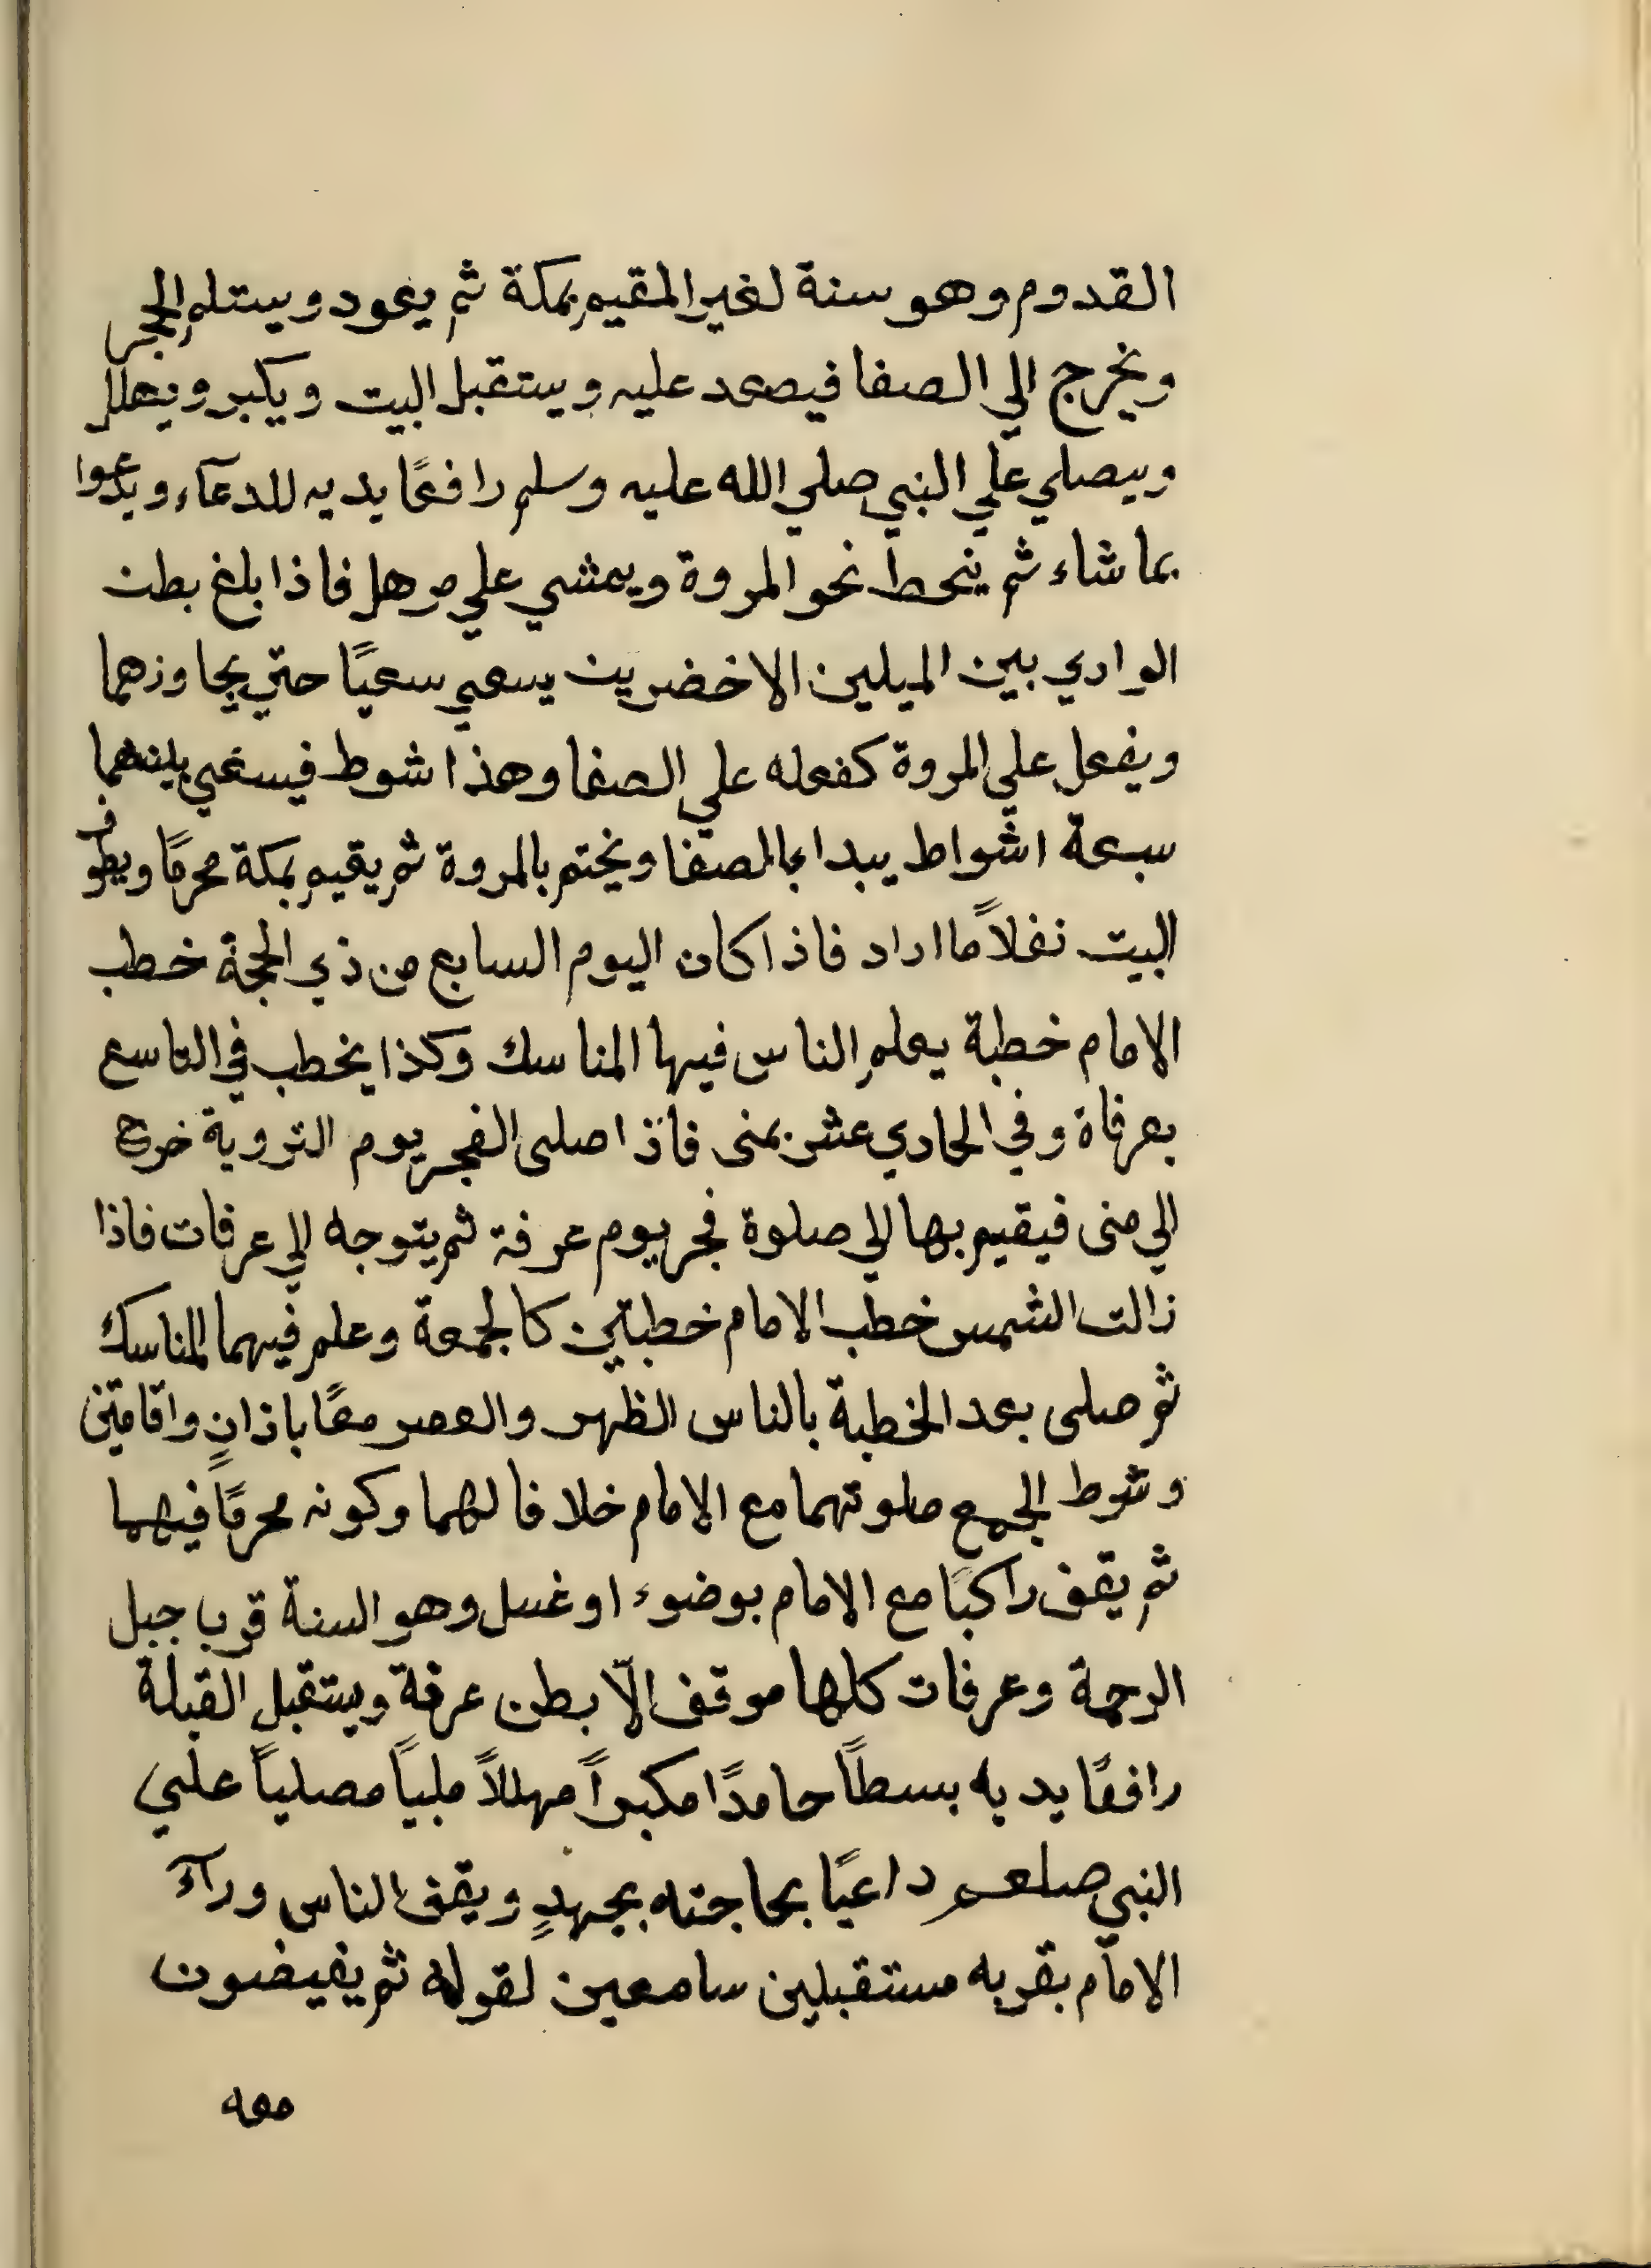 القدوم وهو سنة لغير المقيم بمكة ثم يعود ويستلم الحجر
ويخرج الي الصفا فيصعد عليه ويستقبل البيت ويكبر ويهلل
ويصلي علي النبي صلي الله عليه وسلم رافعًا يديه للدعآء ويدعوا
بما شاء ثم ينحط نحو المروة ويمشي علي مهل فاذا بلغ بطن
الوادي بين الميلين الاخضرين يسعي سعيًا حتي يجاوزهما
ويفعل علي المروة كفعله علي الصفا وهذا شوط فيسعي بينهما
سبعة اشواط يبدا بالصفا ويختم بالمروة ثم يقيم بمكة محرمًا ويطوف
البيت نفلاً ما اراد فاذا كان اليوم السابع من ذي الحجة خطب
الامام خطبة يعلم الناس فيها المناسك وكذا يخطب في التاسع
بعرفاة وفي الحادي عشر بمنى فاذا صلى الفجر يوم التروية خرج
الي منى فيقيم بها الي صلوة فجر يوم عرفة ثم يتوجه الي عرفات فاذا
زالت الشمس خطب الامام خطبتين كالجمعة وعلم فيهما المناسك
ثم صلى بعد الخطبة بالناس الظهر والعصر معًا باذانٍ واقامتين
وشرط الجمع صلوتهما مع الامام خلافا لهما وكونه محرمًا فيهما
ثم يقف راكبًا مع الامام بوضوء او غسل وهو السنة قرب جبل
الرحمة وعرفات كلها موقف الّا بطن عرفة ويستقبل القبلة
رافعًا يديه بسطاً حامدًا مكبراً مهللاً ملبياً مصلياً علي
النبي صلعم داعيًا بحاجته بجهدٍ ويقف الناس ورآءَ
الامام بقربه مستقبلين سامعين لقوله ثم يفيضون
معه